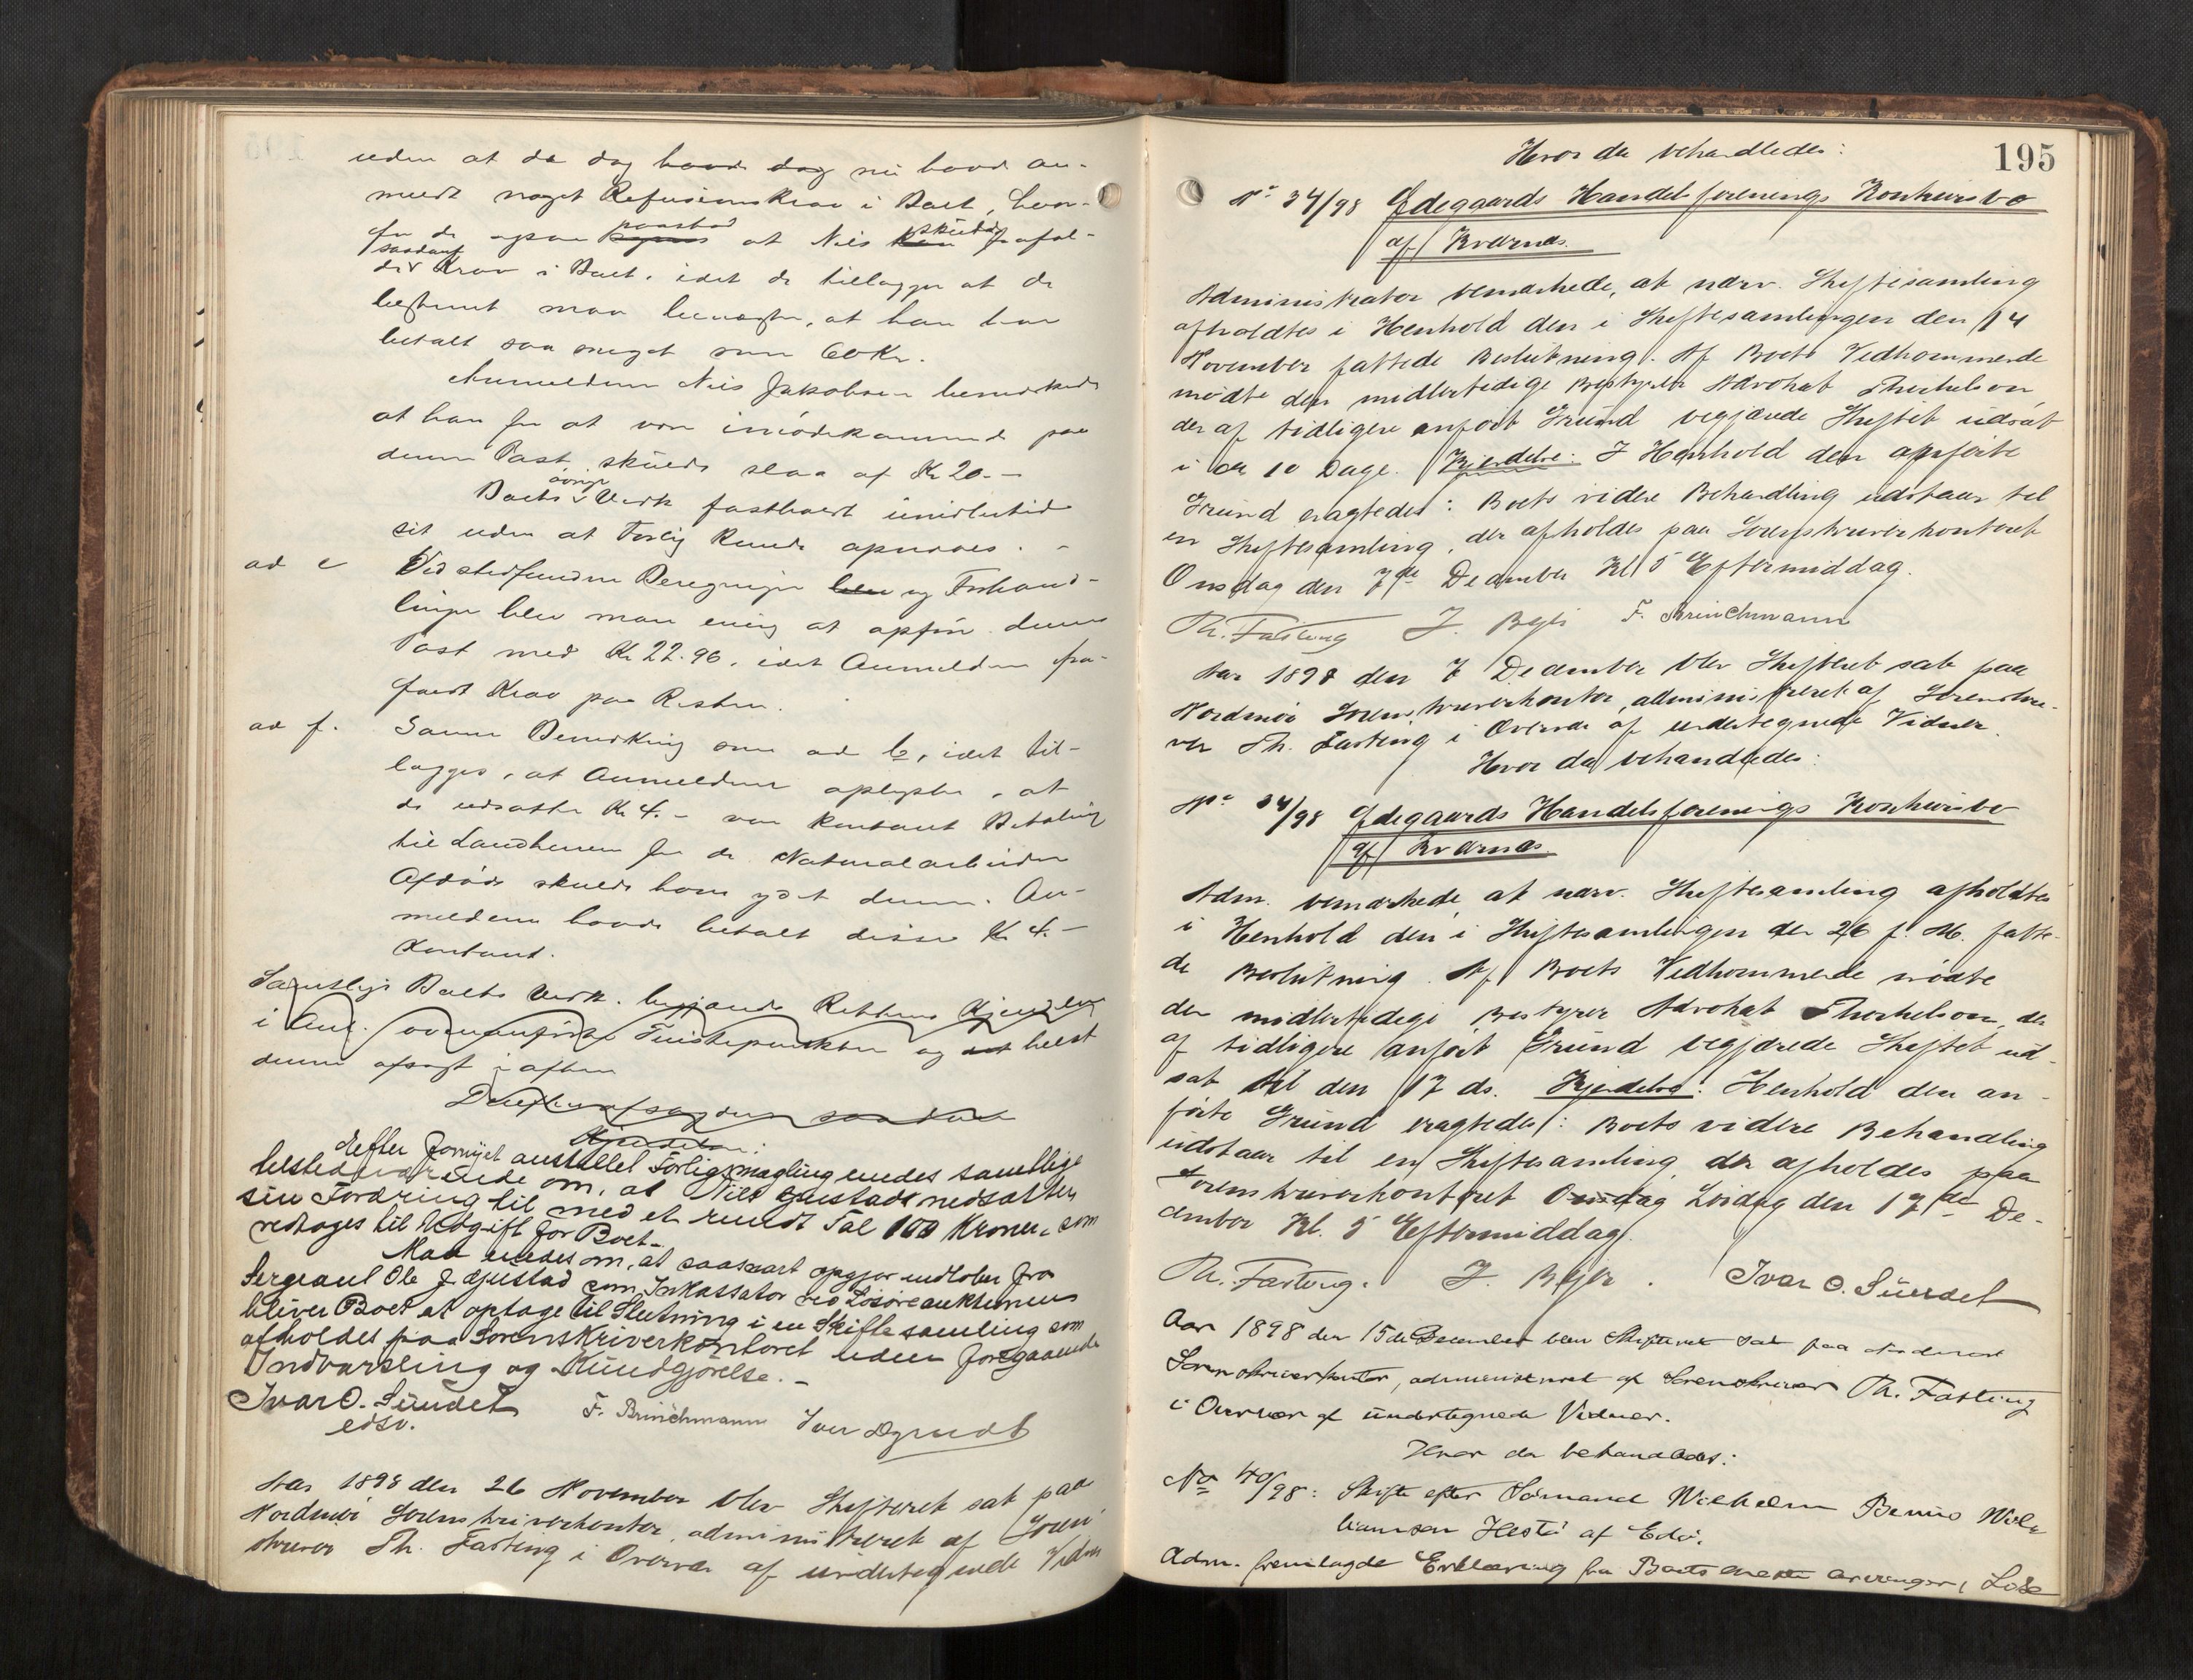 uden at da dog havde dog nu havd an-
meldt noget Refusionskrav i Boet, hvor-
for de ogsaa paastod at Niels skulde frafal-
de saadant Krav i Boet, idet de tillægger at de
bestemt maa benægte, at han har
betalt saa meget som 60 Kr.
Anmelderen Niels Jakobsen bemærkede
at han for at være imødekommende paa
denne Post, skulde slaa af Kr 20.-
Boets øvrige Vedk fastholdt imidlertid
sit uden at Forlig kunde opnaaes. -
ad e Ved stedfunden Beregninger blev og Forhand-
linger blev man enig at opføre denne
Post med Kr 22.96, idet Anmelderen fra-
faldt Krav paa Resten.
ad f. Samme Bemerkning som ad b, idet til-
lægges, at Anmelderen oplyste, at
de udsatte Kr 4.- var kontant Betaling
til Landherren for de Naturalarbeider
Afdøde skulde have ydet denne. An-
melderen havde betalt disse Kr 4.-
kontant.
Samtlige Boets Vedk. begjærede Rettens Kjendelse
i Anl. ovenanførte Tvistepunkter og helst
denne afsagt i aften
Kjendelse:
Efter fornyet anstillet Forligsmægling enedes samtlige
tilstedeværende om, at Niels Gjustad nedsatter
sin Fordring til med et rundt Tal 100 Kroner, som
vedtages til Udgift for Boet.-
Man enedes om, at saasnart opgjør indløber fra
Sergeant Ole J. Gjustad som Inkassator ved Løsøreauktionen
bliver Boet at optage til Slutning i en Skiftesamling som
afholdes paa Sorenskriverkontoret uden foregaaende
Indvarsling og Kundgjørelse.-
Ivar O. Sundet F. Brinchmann Iver Øgrudt
edsv.
Aar 1898 den 26 November blev Skifteret sat paa
Nordmør Sorenskriverkontor, administreret af Soren-
skriver Th. Fasting i Overvær af undertegnede Vidner
195
Hvor da behandledes:
No 34/98 Ødegaards Handelsforenings Konkursbo
af Kværnæs.
Administrator bemærkede, at nærv. Skiftesamling
afholdtes i Henhold den i Skiftesamlingen den 14
November fattede Beslutning. Af Boets Vedkommende
mødte den midlertidige Bestyrer Advokat Thorkelson,
der af tidligere anført Grund begjærede Skiftet udsat
i ca 10 Dage. Kjendelse: I Henhold den anførte
Grund eragtedes: Boets videre Behandling udstaar til
en Skiftesamling, der afholdes paa Sorenskriverkontoret
Onsdag den 7de December Kl 5 Eftermiddag.
Th. Fasting J. Bejer F. Brinchmann
Aar 1898 den 7 December blev Skifteret sat paa
Nordmør Sorenskriverkontor, administreret af Sorenskri-
ver Th. Fasting i Overvær af undertegnede Vidner.
Hvor da behandledes:
No 34/98 Ødegaards Handelsforenings Konkursbo
af Kværnæs.
Adm. bemærkede, at nærv. Skiftesamling afholdtes
i Henhold den i Skiftesamlingen den 26 f. M. fatte-
de Beslutning. Af Boets Vedkommende mødte
den midlertidige Bestyrer Advokat Thorkelson, der
af tidligere anført Grund begjærede Skiftet ud-
sat til den 17 ds. Kjendelse: I Henhold den an-
førte Grund eragtedes: Boets videre Behandling
udstaar til en Skiftesamling der afholdes paa
Sorenskriverkontoret Onsdag Lørdag den 17de De-
cember Kl. 5 Eftermiddag.
Th. Fasting. J. Bejer. Ivar O. Sundet
Aar 1898 den 15de December blev Skifteret sat paa Nordmør
Sorenskriverkontor, administreret af Sorenskriver Th. Fasting
i Overvær af undertegnede Vidner.
Hvor da behandledes:
No 40/98: Skifte efter Sømand Wilhelm Benius Wil-
hamsen Hestø af Edø.
Adm. fremlagde Erklæring fra Boets eneste arvinger, Lose